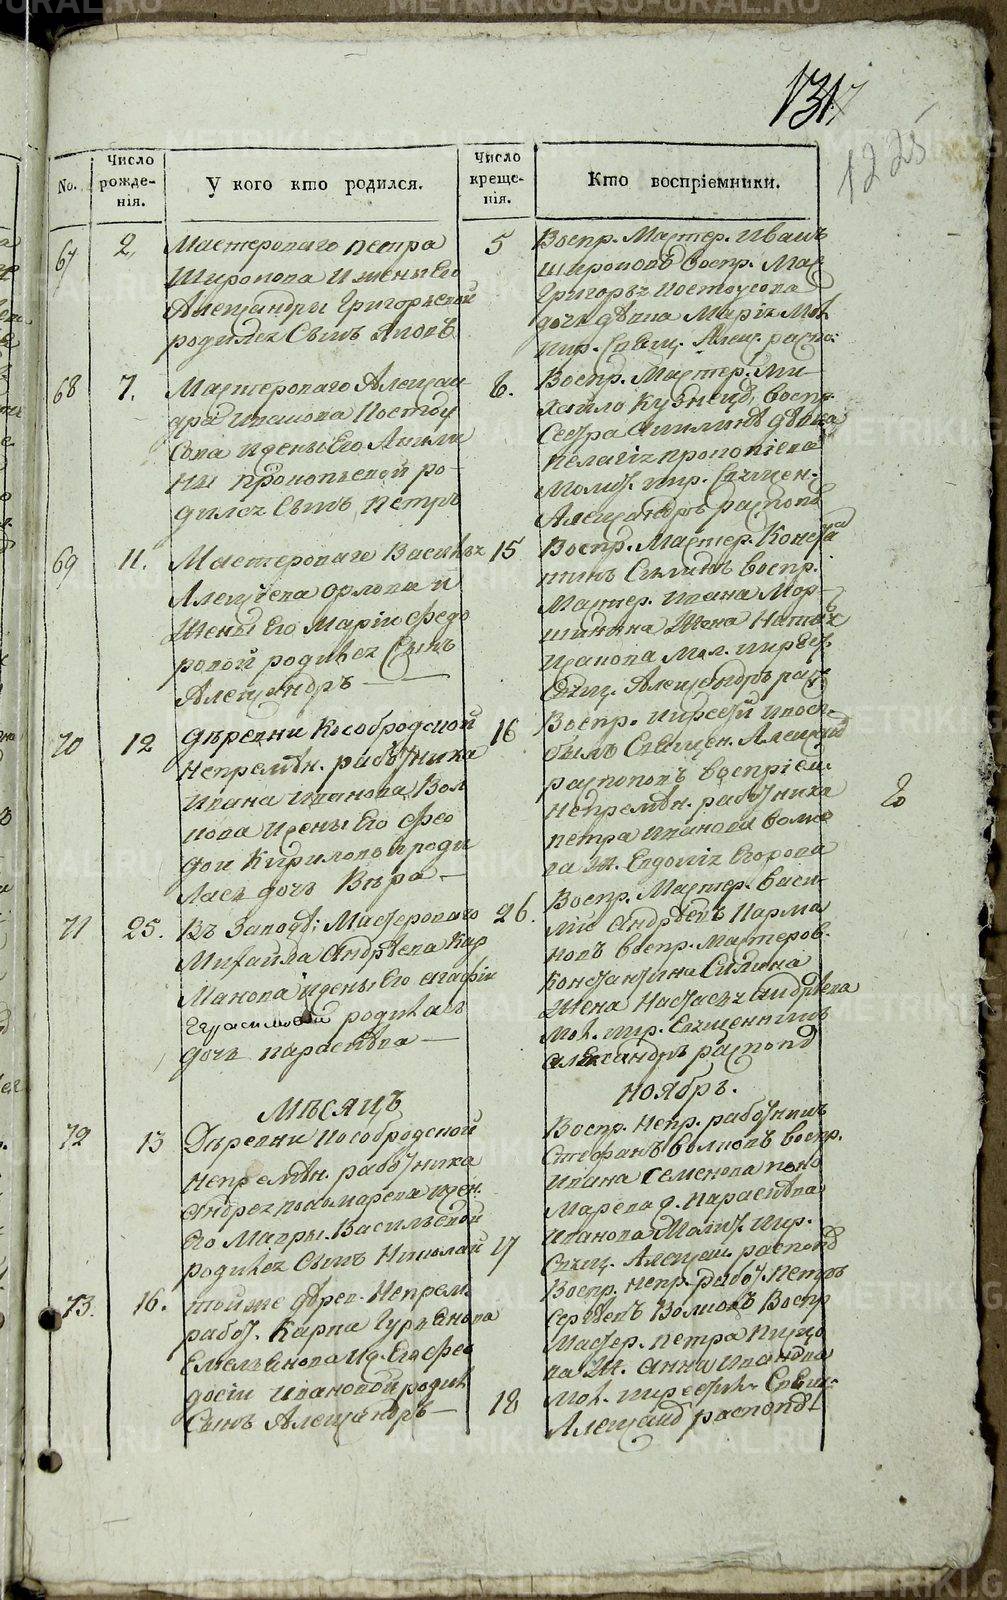 131
1225
No.
Число рожденія.
У кого кто родился.
Число крещенія.
Кто воспріемники.
67
2.
Мастероваго Петра
Широкова и жены Его
Александры Григорьевой
родился Сынъ Яковъ
5
Воспр. Мастер. Иванъ
Широковъ воспр. Мас
Григорья Костоусова
дочь дѣвка Марія Мол
мир. Свящ. Алекс. распо:
68
7.
Мастероваго Алексан
дра Иванова Костоу
сова и жены Его Акили
ны Прокопьевой ро-
дился Сынъ Петръ
8.
Воспр. Мастер. Ми-
хайло Кузнецъ, воспр.
Сестра Акилинѣ дѣвка
Пелагія Прокопіева
Молит. мир. Священ.
Александръ распопъ
69
11.
Мастероваго Василья
Алексѣева Орлова и
Жены Его Маріи Федо
ровой родился Сынъ
Александръ —
15
Воспр. Мастер. Конста
тинъ Силинъ воспр.
Мастер. Ивана Мор-
Жена Наталья
Мол. мир.
Свящ. Александръ рас
70
12
Деревни Кособродской
Непремѣн. работника
Ивана Иванова Вол
кова и жены Его Фео
дои Кириловы роди
лась дочь Вѣра —
16
Воспр.
Священ. Александ
распоповъ воспріем.
Непремѣн. работника
Петра Иванова Волко
ва Ж. Евдокія Егорова
71
25.
Въ Заводѣ: Мастероваго
Михайла Андрѣева Кар
манова и жены Его Агафіи
Герасимовой родилась
дочь Параскѣва —
26.
Воспр. Мастер. Васи-
лій Андрѣевъ Карма
новъ воспр. Мастеров.
Константина Силина
Жена Настасья Андрѣева
Мол. мир. Священникъ
Александръ распопъ
Мѣсяцъ
Ноябрь.
72
13
Деревни Кособродской
Непремѣн. работника
Андрея Пономарева и жен.
его Мавры Васильевой
родился Сынъ Николай
17
Воспр. Непр. работникъ
Стефанъ Волковъ воспр.
Ивана Семенова Поно
марева д. Параскѣва
Иванова Молит. мир.
Свящ. Александ. распопъ
73.
16.
Той же дерев. Непрем.
работ. Карпа Гурьянова
Емельянова и ж. Его Фео
досіи Ивановой родил
Сынъ Александръ —
18
Воспр. Непр. работ. Петръ
Сергѣевъ Волковъ Воспр
Мастер. Петра
ва Ж. Анна Иванова
Мол. мир. Свящ.
Александ распопъ